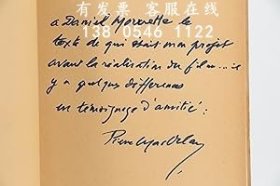 有发票 客服在线
138 0546 1122
a Daniel
texte de qui était mon projet
avant la réalisation du film... il
y a quelques différences
en témoignage d'amitié :